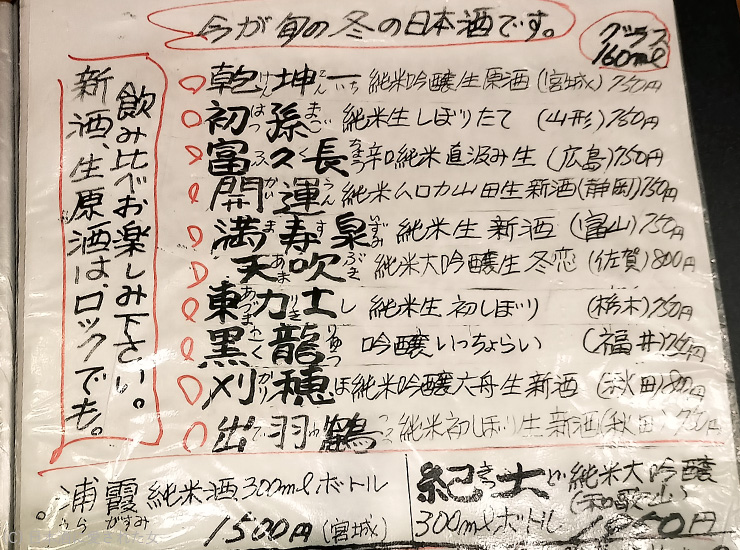 今が旬の冬の日本酒です。
グラス
160ml
飲み比べお楽しみ下さい。
新酒、生原酒は、ロックでも。
乾坤一 けんこんいち 純米吟醸生原酒(宮城)750円
初孫 はつまご 純米生しぼりたて(山形)750円
富久長 ふくちょう 辛口純米直汲み生(広島)750円
開運 かいうん 純米ムロカ山田生新酒(静岡)750円
満寿泉 ますいずみ 純米生新酒(富山)750円
天吹 あまぶき 純米大吟醸生冬恋(佐賀)800円
東力士 あづまりきし 純米生初しぼり(栃木)750円
黒龍 こくりゅう 吟醸いっちょらい(福井)
刈穂 かりほ 純米吟醸六舟生新酒(秋田)800円
出羽鶴 でわつる 純米初しぼり生新酒(秋田)750円
浦霞 うらかすみ 純米酒300mlボトル
1500円(宮城)
紀土 きっど 純米大吟醸
(和歌山)
300mlボトル